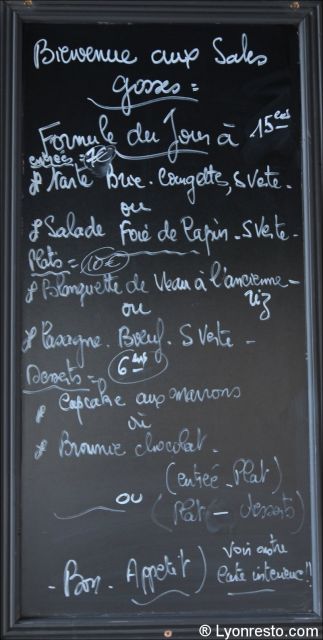 Bienvenue aux Sales
gosses =
Formule du Jour à 15 €
entrées = 7€
* Tarte Brie. Courgettes, S Verte.
ou
* Salade Foie de Lapin. S Verte.
Plats = 10€
* Blanquette de Veau à l'ancienne -
riz
ou
* Lasagne. Boeuf. S Verte -
Desserts = 6
* Cupcake aux marrons
ou
* Brownie chocolat.
(entrée - Plat)
ou
(Plat - desserts)
- Bon. Appétit) Voir notre
Carte intérieure!!
® Lyonresto.com